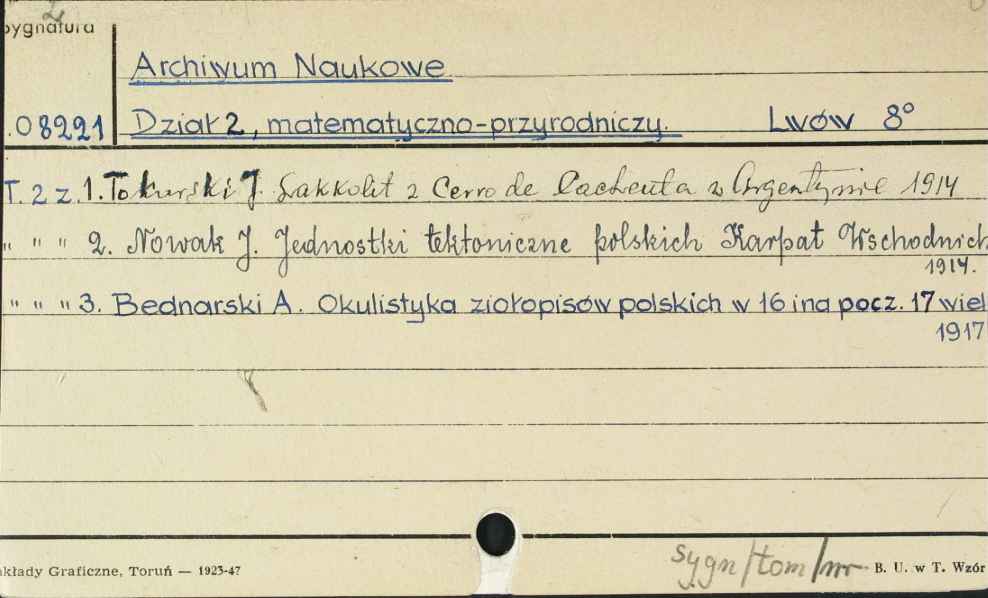 2
Sygnatura
Archiwum Naukowe
08221 Dział 2, matematyczno-przyrodniczy. Lwów 8°
T. 2 z. 1. Tokarski J. Lakkolit z Cerro de Cacheuta w Argentynie 1914
" " " 2. Nowak J. Jednostki tektoniczne polskich Karpat Wschodnich
1914.
" " " 3. Bednarski A. Okulistyka ziołopisów polskich w 16 i na pocz. 17 wiek
1917
sygn/tom/nr
akłady Graficzne, Toruń — 1923-47 B. U. w T. Wzór